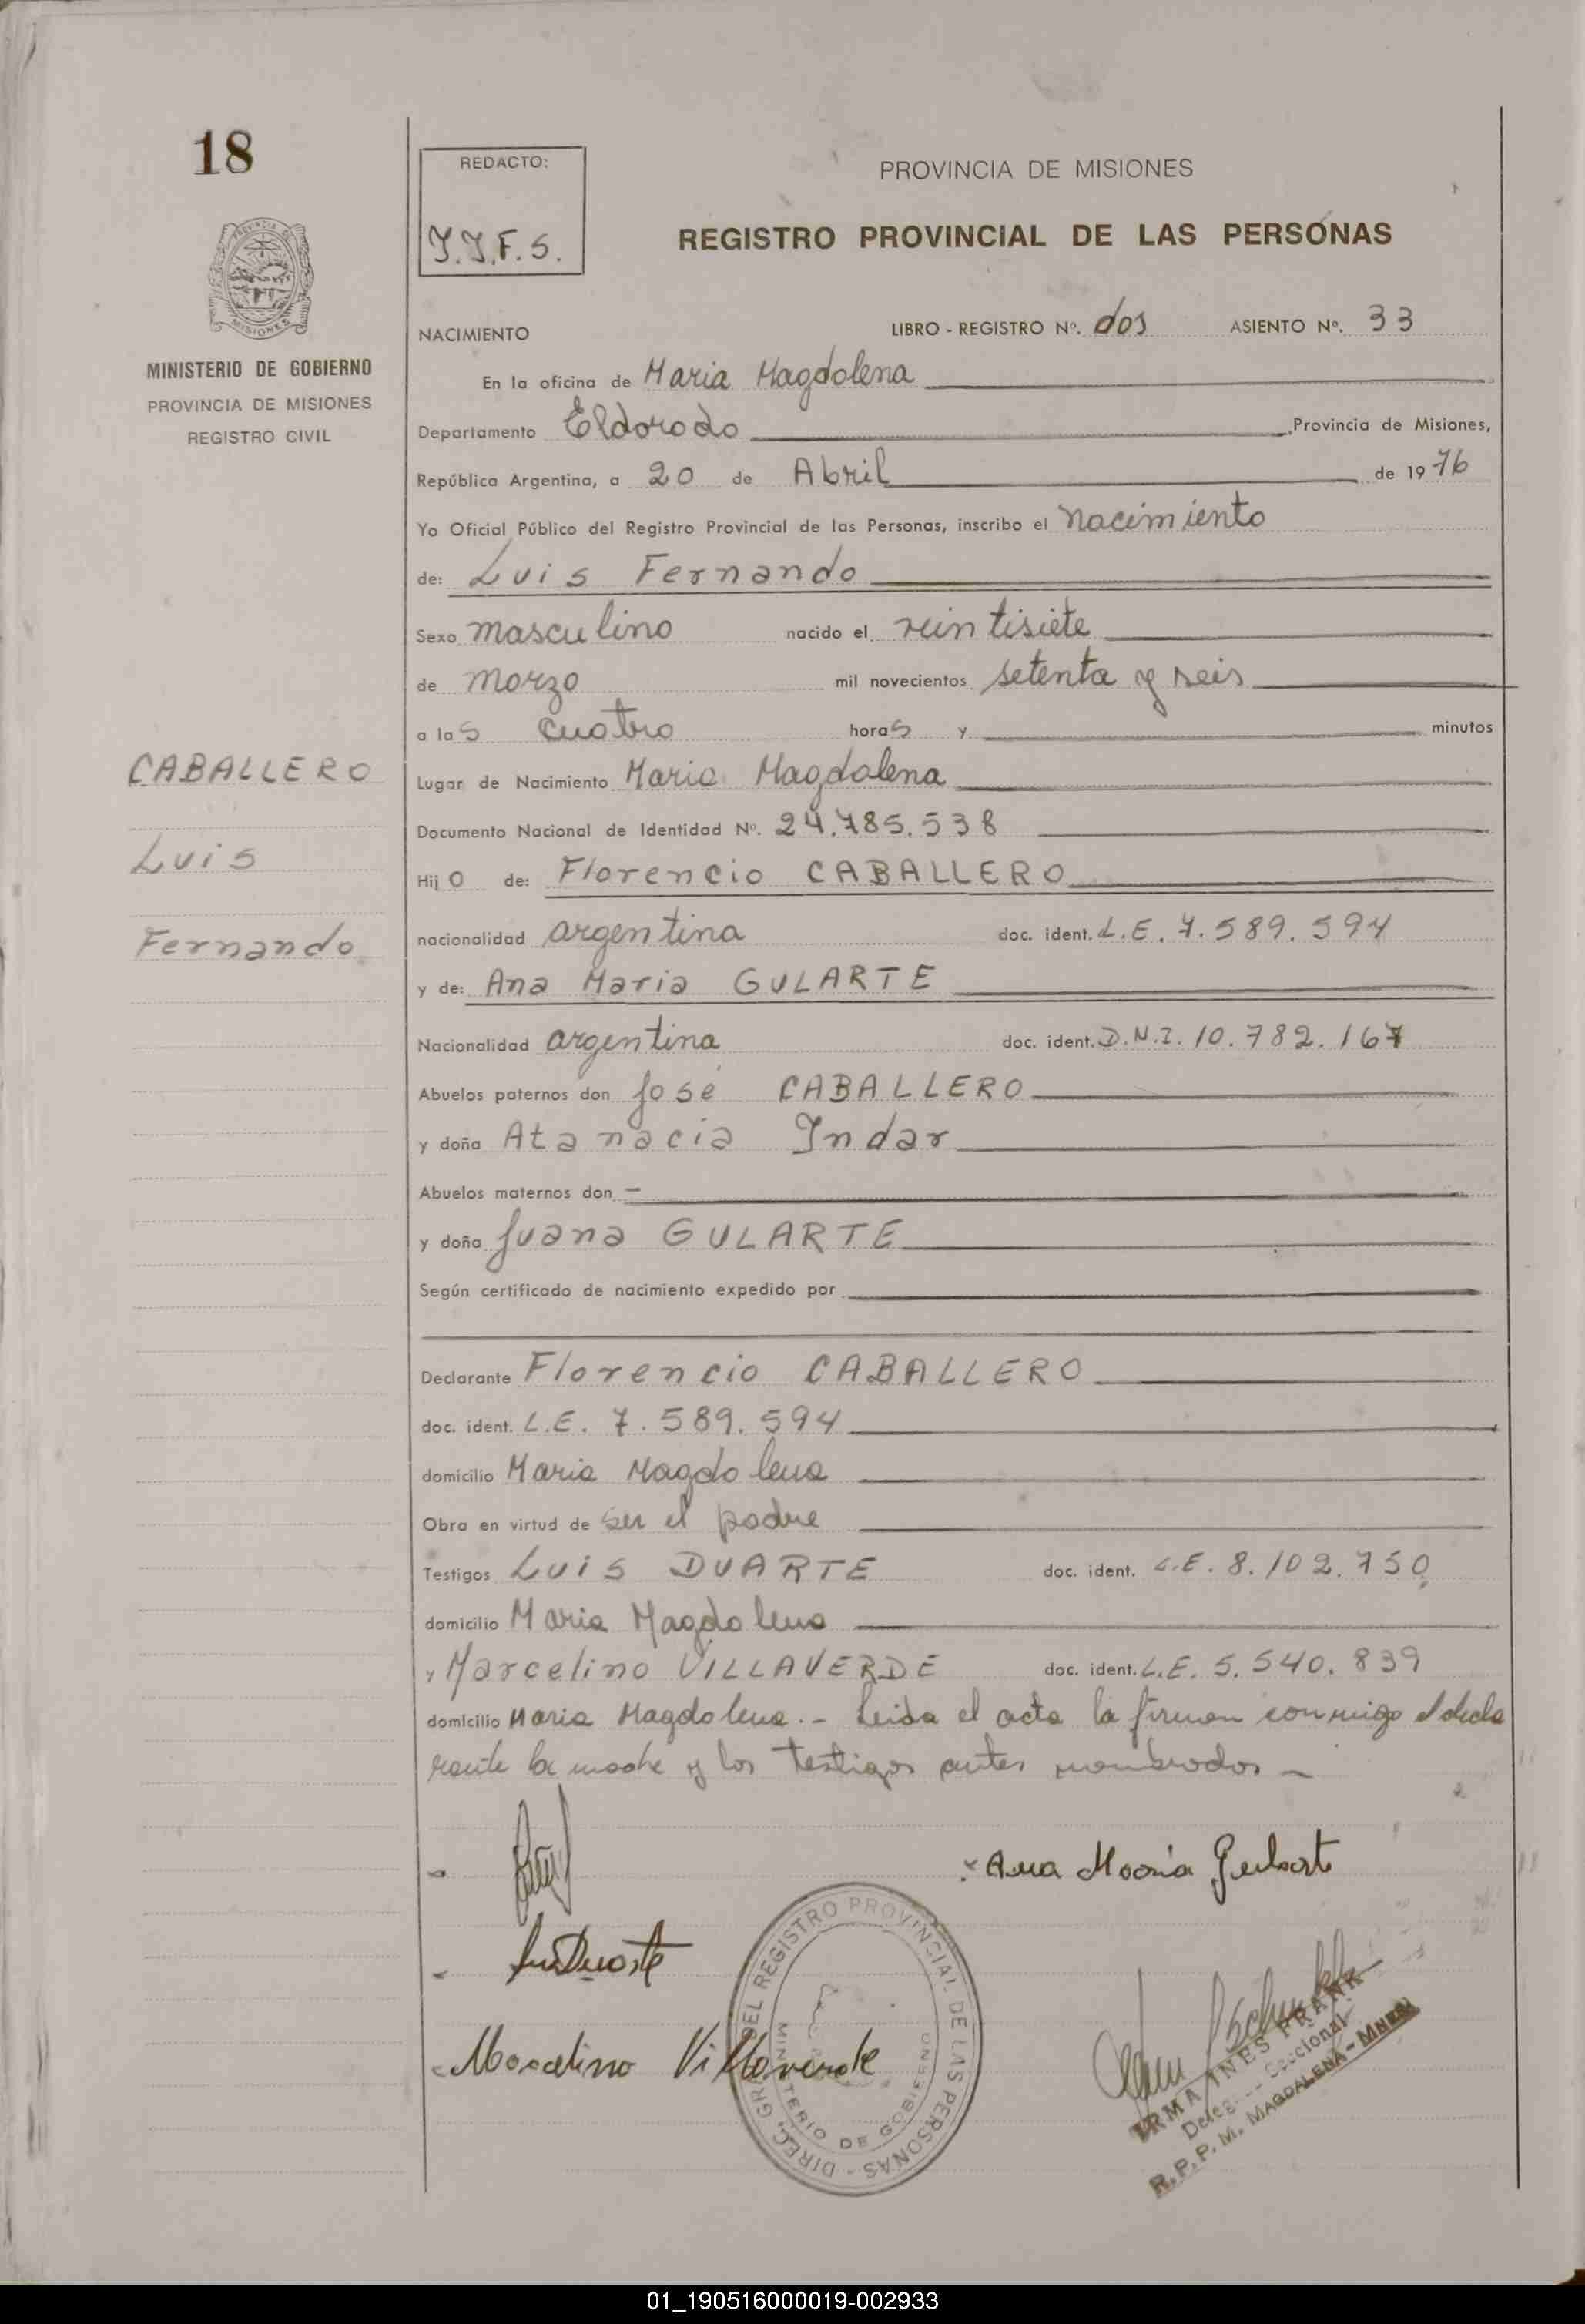 18
REDACTO:
J.J.F.S.
PROVINCIA DE MISIONES
REGISTRO PROVINCIAL DE LAS PERSONAS
MISIONES
MINISTERIO DE GOBIERNO
PROVINCIA DE MISIONES
REGISTRO CIVIL
NACIMIENTO LIBRO - REGISTRO Nº. dos ASIENTO Nº. 33
En la oficina de Maria Magdalena
Departamento Eldorado Provincia de Misiones,
República Argentina, a 20 de Abril de 1976
Yo Oficial Público del Registro Provincial de las Personas, inscribo el nacimiento
de: Luis Fernando
Sexo masculino nacido el veintisiete
de marzo mil novecientos setenta y seis
a las cuatro horas y minutos
CABALLERO
Luis
Fernando
Lugar de Nacimiento Maria Magdalena
Documento Nacional de Identidad Nº. 24.785.538
Hijo de: Florencio CABALLERO
nacionalidad argentina doc. ident. L.E. 7.589.594
y de: Ana Maria GULARTE
Nacionalidad argentina doc. ident. D.N.I. 10.782.167
Abuelos paternos don José CABALLERO
y doña Atanacia Indar
Abuelos maternos don —
y doña Juana GULARTE
Según certificado de nacimiento expedido por
Declarante Florencio CABALLERO
doc. ident. L.E. 7.589.594
domicilio Maria Magdalena
Obra en virtud de ser el padre
Testigos Luis DUARTE doc. ident. L.E. 8.102.750
domicilio Maria Magdalena
y Marcelino VILLAVERDE doc. ident. L.E. 5.540.839
domicilio Maria Magdalena.- Leida el acta la firman conmigo el decla
rante la madre y los testigos antes nombrados -
Ana Maria Gularte
Luis Duarte
Marcelino Villaverde
DIREC. GRAL. DEL REGISTRO PROVINCIAL DE LAS PERSONAS -
MINISTERIO DE GOBIERNO
IRMA INES FRANK
Seccional
R.P.P.M. MAGDALENA - MNES
01_190516000019-002933